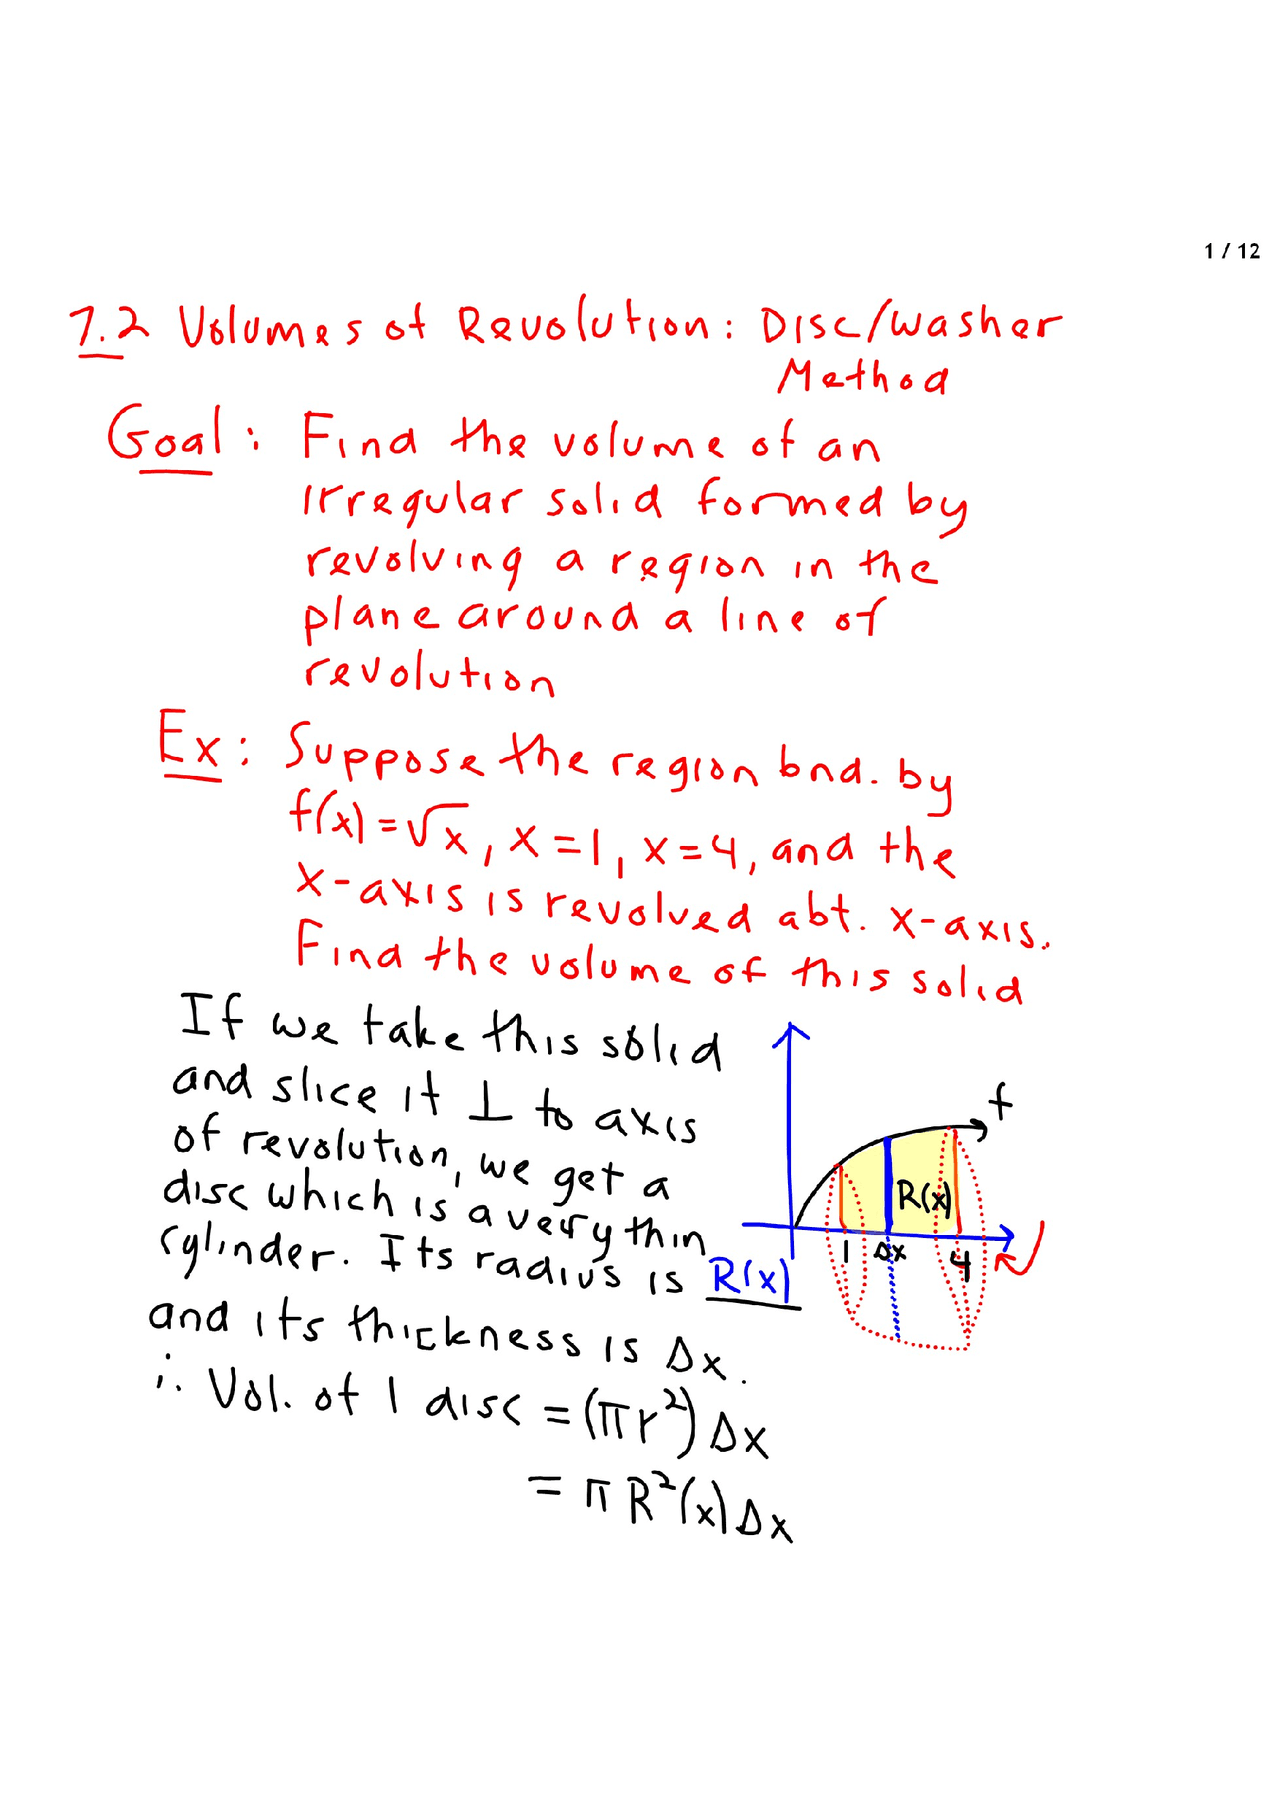 1 / 12
7.2 Volumes of Revolution: Disc/Washer
Method
Goal: Find the volume of an
irregular solid formed by
revolving a region in the
plane around a line of
revolution
Ex: Suppose the region bnd. by
f(x)=√x, x=1, x=4, and the
x-axis is revolved abt. x-axis.
Find the volume of this solid
If we take this solid
and slice it ⊥ to axis
of revolution, we get a
disc which is a very thin
cylinder. Its radius is R(x)
and its thickness is Δx.
∴ Vol. of 1 disc = (πr²) Δx
= π R²(x) Δx
f
R(x)
1 Δx 4